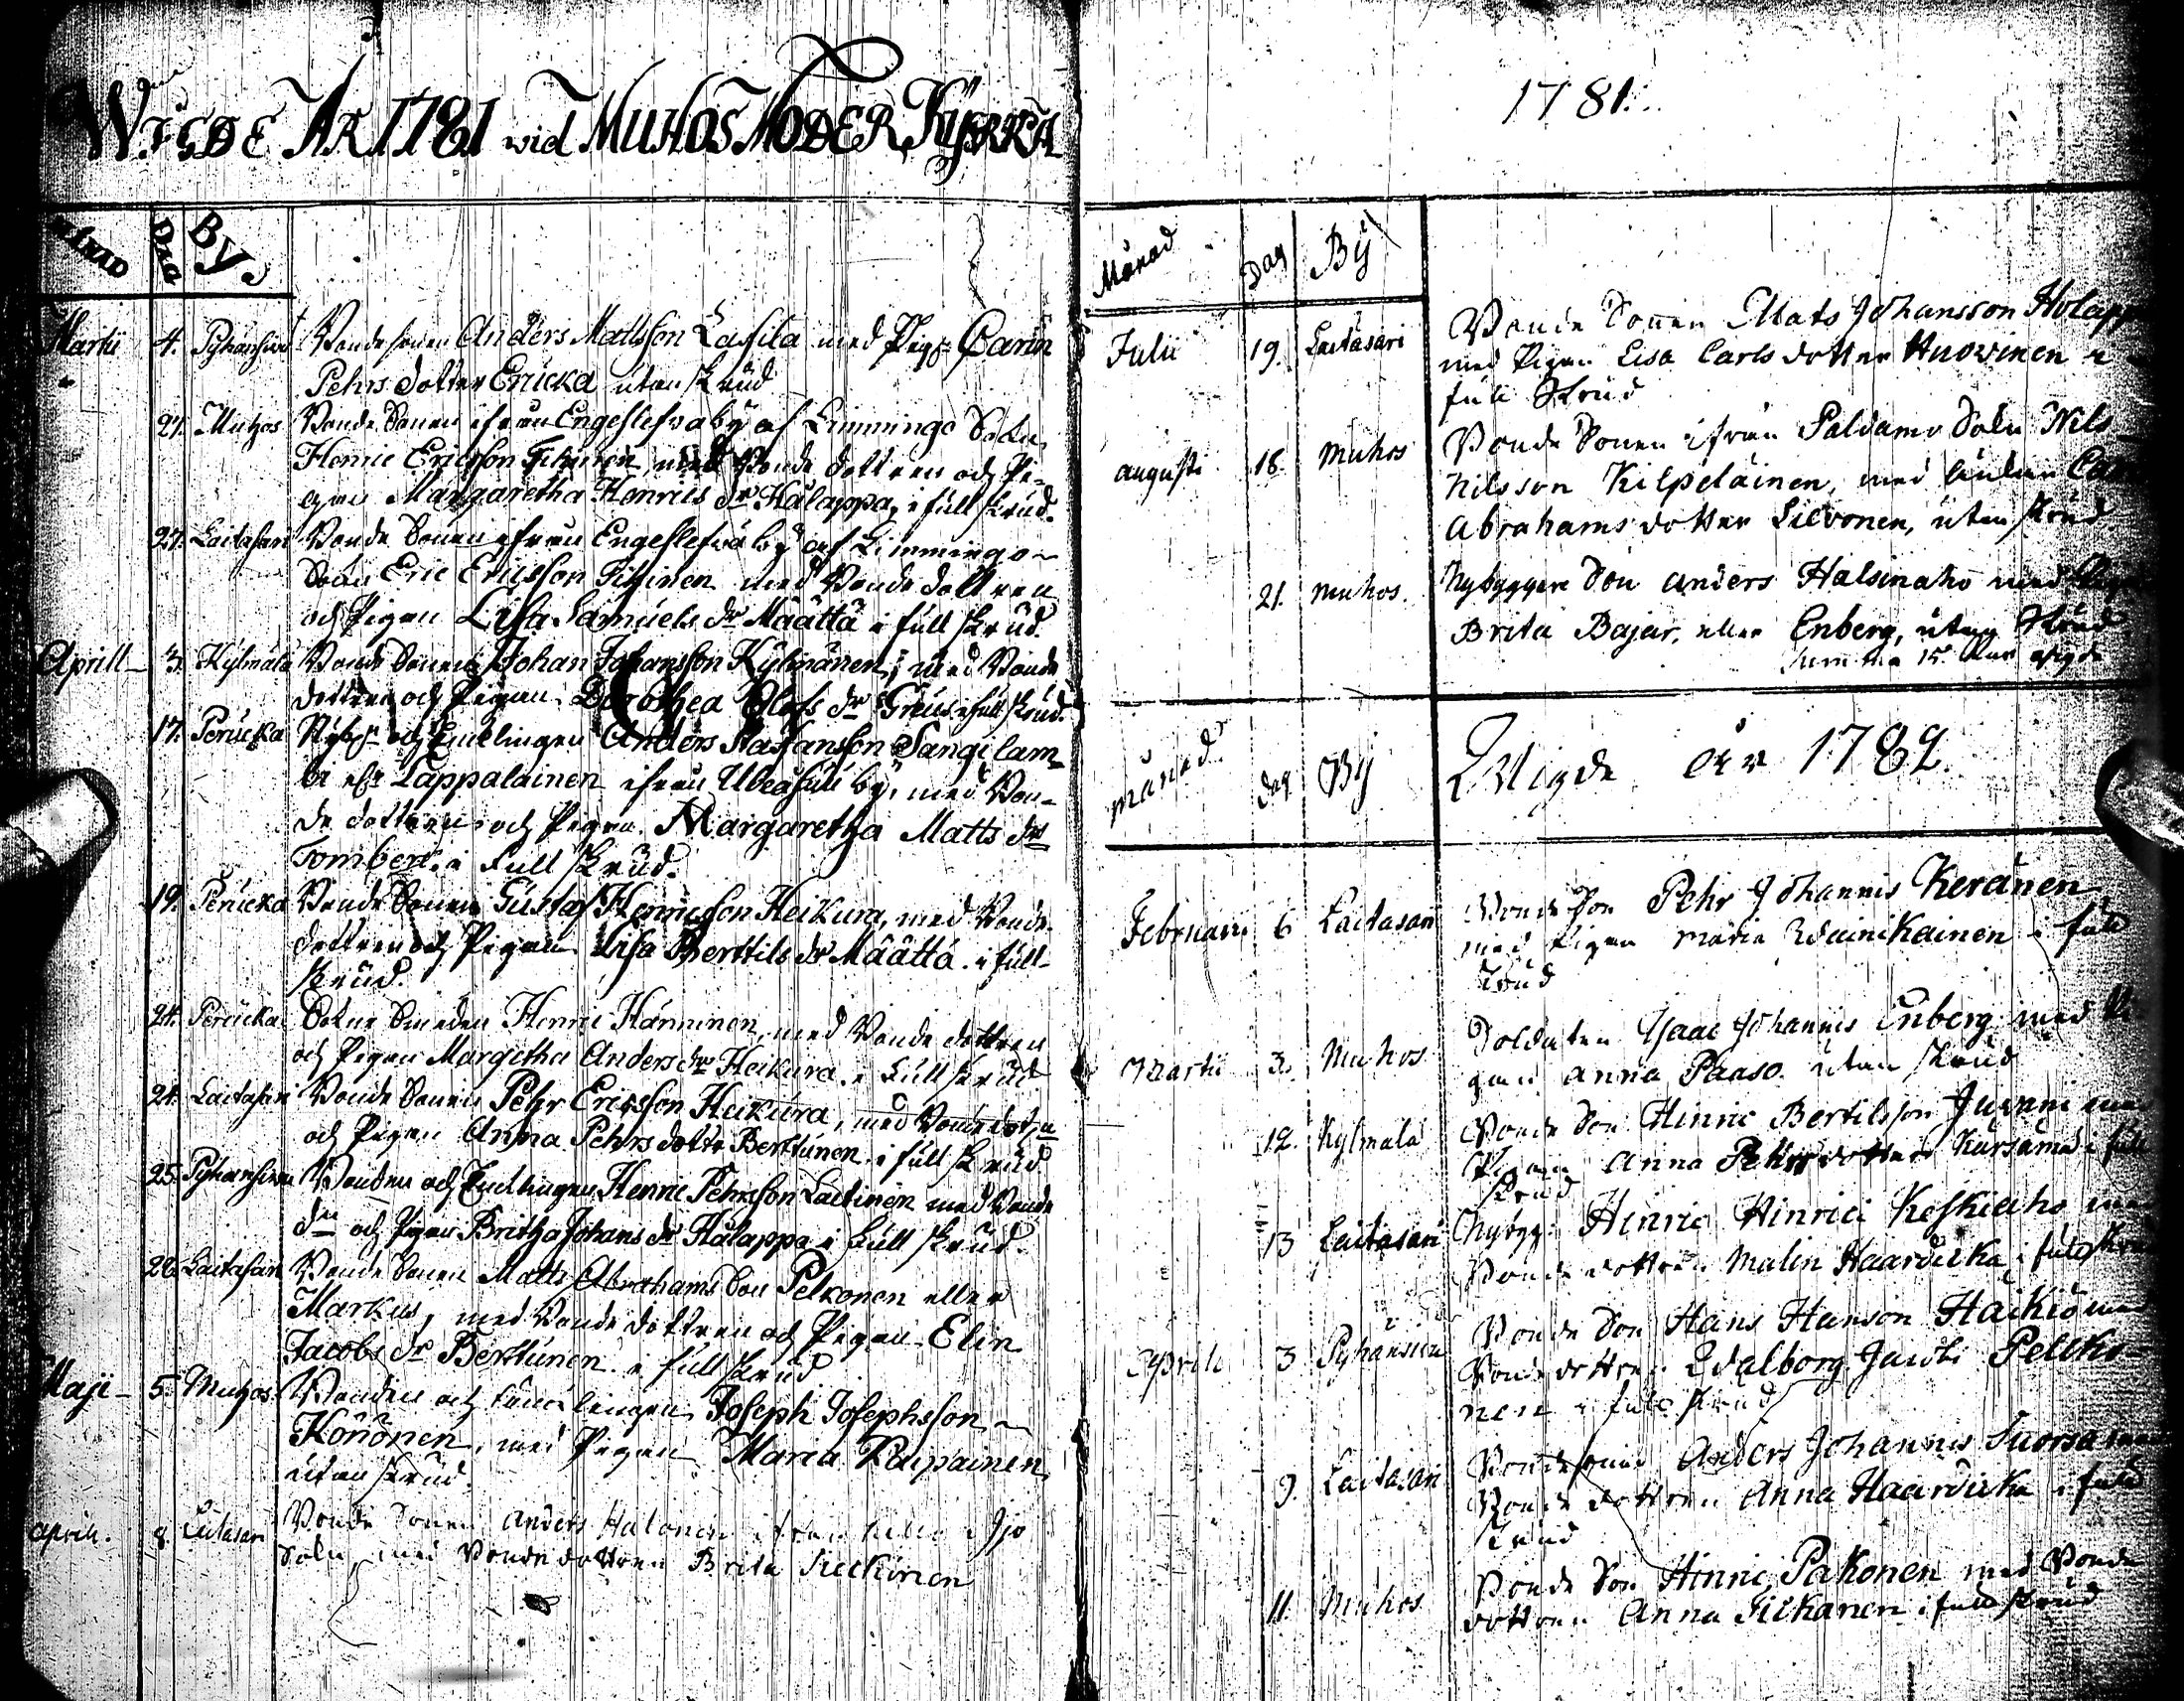 WIGDE ÅR 1781 wid MUHOS MODER KYRKA
MÅNAD DAG By.
Martii 4. Pyhänsivu Bondesonen Anders Mattsson Lassila med Pig: Carin
Pehrs dotter Ericka utan skrud
27. Muhos Bonde Sonen ifrån Engeslefvaby af Limmingo Sokn
Henric Ericsson Tihinen med Bonde dottren och Pi-
gan Margaretha Henrics dr Hålappa, i full skrud.
27. Laitasari Bonde Sonen ifrån Engeslefvaby af Limmingo
Sokn Eric Ericsson Tihinen med Bonde dottren
och Pigan Lisa Samuels dr Määttä i full skrud.
Aprill 3. Kylmälä Bonde Sonen Johan Johansson Kylmänen, med Bonde
dottren och Pigan Dorothea Olofs dr Greus i full skrud.
17. Perucka Nyb. och Enklingen Anders Staffansson Sangilam-
bi elr Lappalainen ifrån Uleåsuu by, med Bon-
de dottren och Pigan Margaretha Matts dr
Tomberi i full skrud.
19. Perucka Bonde Sonen Gustaf Henricsson Heikura, med Bonde
dottren och Pigan Lisa Berttils dr Määttä i full
skrud.
24. Perucka Sokne Smeden Henric Hänninen, med Bonde dottren
och Pigan Margetha Anders dr Heikura i full skrud
24. Laitasari Bonde Sonen Pehr Ericsson Heikura, med Bonde dotn
och Pigan Anna Pehrs dotter Berttunen i full skrud
25. Pyhänsivu Bonden och Enklingen Henric Pehrsson Laitinen med Bonde
dn och Pigan Britha Johans dr Hålappa i full skrud.
26. Laitasari Bonde Sonen Matts Abrahams Son Pelkonen eller
Markus, med Bonde dottren och Pigan Elin
Jacobs dr Berttunen i full skrud
Maji 5. Muhos Bonden och Enklingen Joseph Josephsson
Könönen, med Pigan Maria Kaipainen,
utan skrud.
April. 8. Laitasari Bonde Sonen Anders Halonen ifrån Ijo
Sokn, med Bonde dottren Brita
1781.
Månad Dag By
Julii 19. Laitasari Bonde Sonen Mats Johansson Holapp
med Pigan Lisa Carls dotter Huovinen i
full Skrud
augusti 18. Muhos Bonde Sonen ifrån Paldamo Sokn Nils
Nilsson Kilpeläinen, med Änkan
Abrahams dotter Silvonen, utan skrud.
21. Muhos. Nybyggare Son Anders Halsinaho med
Brita Bajar, eller Enberg, utan Skrud
Summa 15. Par wigde
månad. dag By Wigde åhr 1782.
Februari 6 Laitasari Bonde Son Pehr Johannis Keränen
med Pigan Maria Wäinikainen i full
Skrud
Martii 3. Muhos Soldaten Isaac Johannis Enberg med Pi
gan Anna Paaso utan skrud
12. Kylmälä Bonde Son Hinric Bertilsson Juvani med
Pigan Anna Pehrs dotter Kursama i full
skrud
13 Laitasari Nybygg: Hinric Hinrici Keskiaho med
Bonde dottren Malin Haardicka i full skrud
Aprill 3 Pyhänsivu Bonde Son Hans Hanson Haikiö med
Bonde dottren Walborg Jacobi Pelko-
nen i full skrud
9. Laitasari Bondesonen Anders Johannis Suorsa med
Bonde dottren Anna Haardicka i full
skrud
11 Muhos Bonde Son Hinric Pakonen med Bonde
dottren Anna Tikkanen i full skrud